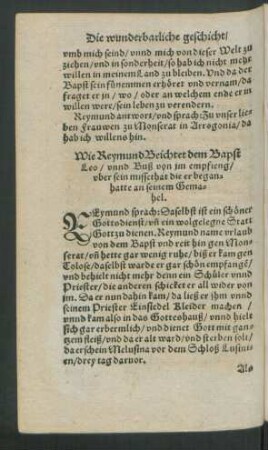 Die wunderbarliche geschicht/
vmb mich seind/ vnnd mich von dieser Welt zu
ziehen/ vnd in sonderheit/ so hab ich nicht mehr
willen in meinem Land zu bleiben. Vnd da der
Bapst sein fünemmen erhöret vnd vernam/ da
fraget er jn / wo / oder an welchem ende er in
willen were/ sein leben zu verendern.
Reymund antwort/ vnd sprach: Zu vnser lie-
ben Frauwen zu Monserat in Arrogonia/ da
hab ich willens hin.
Wie Reymund Beichtet dem Bapst
Leo/ vnnd Buß von jm empfieng/
vber sein missethat die er began-
hatte an seinem Gema-
hel.
REymund sprach: Daselbst ist ein schöner
Gottsdienst/ vñ ein wolgelegne Statt
Gott zu dienen. Reymund name vrlaub
von dem Bapst vnd reit hin gen Mon-
serat/ vñ hette gar wenig ruhe/ biß er kam gen
Tolose/ daselbst warde er gar schön empfangẽ/
vnd behielt nicht mehr denn ein Schüler vnnd
Priester/ die anderen schicket er all wider von
jm. Da er nun dahin kam/ da ließ er jhm vnnd
seinem Priester Einsidel Kleider machen /
vnnd kam also in das Gotteshauß/ vnnd hielt
sich gar erbermlich/ vnd dienet Gott mit gan-
tzem fleiß/ vnd da er alt ward/ vnd sterben solt/
da erschein Melusina vor dem Schloß Lusini-
en/ drey tag darvor.
Als